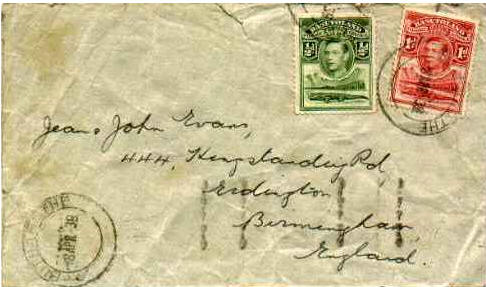 BASUTOLAND
½d ½d
BASUTOLAND
1d 1d
THE
Jean & John Evans,
444, Kingstanding Rd,
Erdington
Birmingham,
England.
THE
8 APR 38